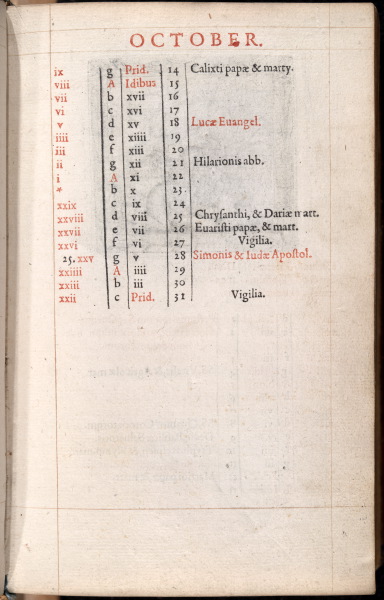 OCTOBER.
ix g Prid. 14 Calixti papæ & marty.
viii A Idibus 15
vii b xvii 16
vi c xvi 17
v d xv 18 Lucæ Euangel.
iiii e xiiii 19
iii f xiii 20
ii g xii 21 Hilarionis abb.
i A xi 22
* b x 23
xxix c ix 24
xxviii d viii 25 Chrysanthi, & Dariæ mart.
xxvii e vii 26 Euaristi papæ, & mart.
xxvi f vi 27 Vigilia.
25. xxv g v 28 Simonis & Iudæ Apostol.
xxiiii A iiii 29
xxiii b iii 30
xxii c Prid. 31 Vigilia.